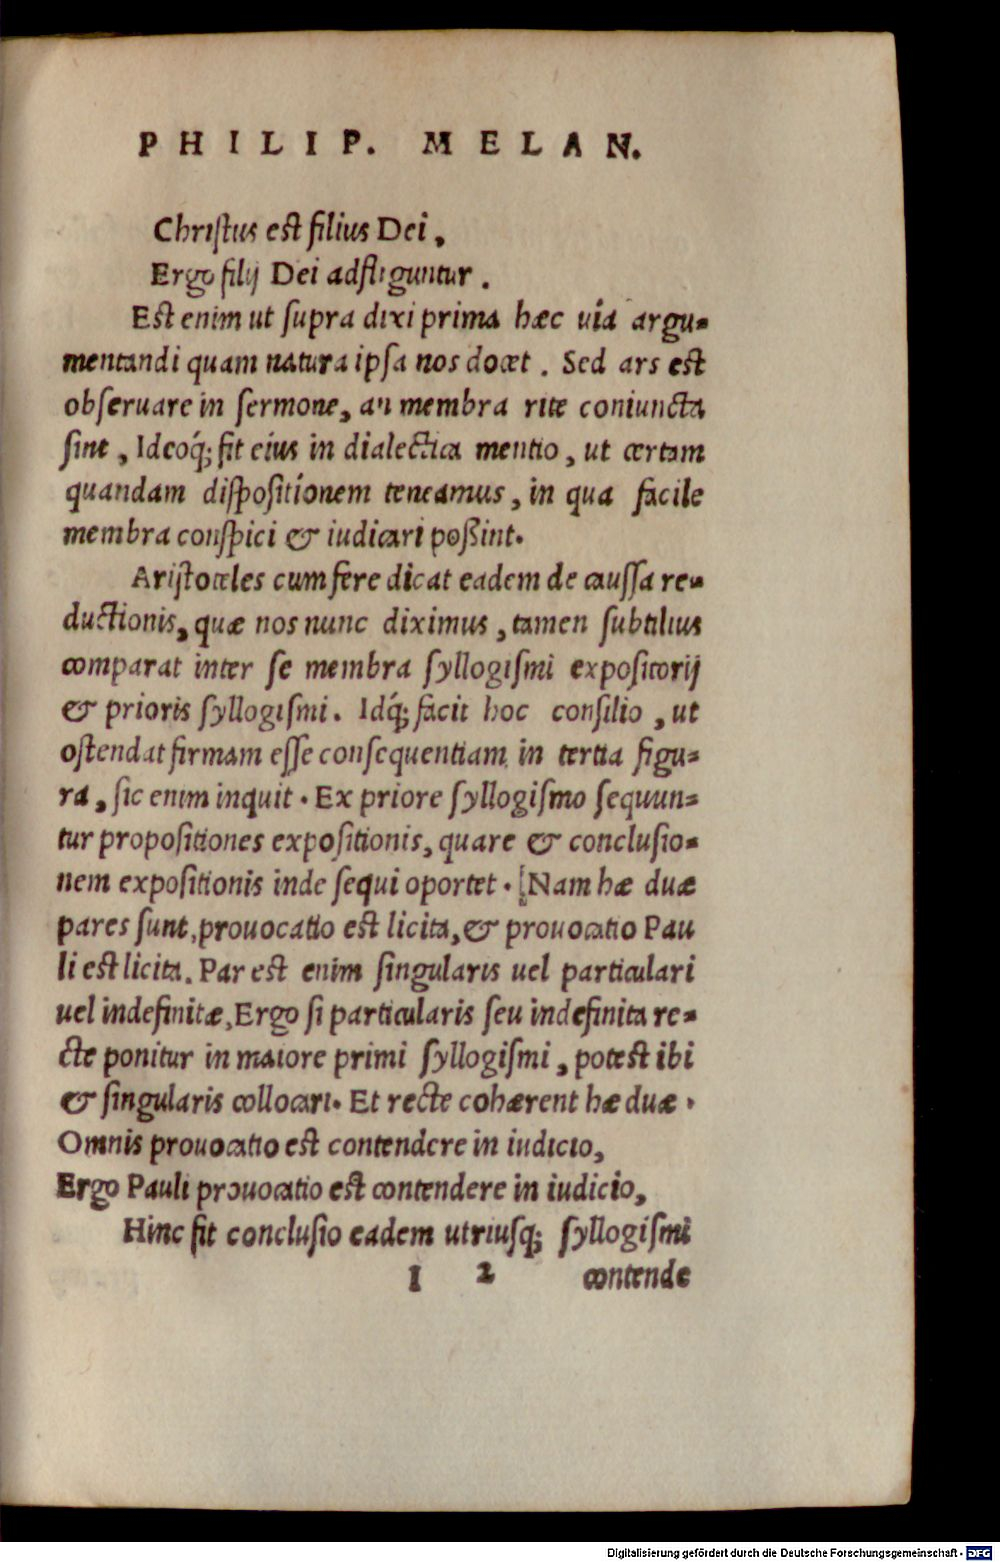 PHILIP. MELAN.
Christus est filius Dei,
Ergo filij Dei adfliguntur.
Est enim ut supra dixi prima hæc uia argu-
mentandi quam natura ipsa nos docet. Sed ars est
obseruare in sermone, an membra rite coniuncta
sint, Ideoq́; fit eius in dialectica mentio, ut certam
quandam dispositionem teneamus, in qua facile
membra conspici & iudicari possint.
Aristoteles cum fere dicat eadem de caussa re-
ductionis, quæ nos nunc diximus, tamen subtilius
comparat inter se membra syllogismi expositorij
& prioris syllogismi. Idq́; facit hoc consilio, ut
ostendat firmam esse consequentiam in tertia figu-
ra, sic enim inquit. Ex priore syllogismo sequun-
tur propositiones expositionis, quare & conclusio-
nem expositionis inde sequi oportet. Nam hæ duæ
pares sunt, prouocatio est licita, & prouocatio Pau
li est licita. Par est enim singularis uel particulari
uel indefinitæ, Ergo si particularis seu indefinita re-
cte ponitur in maiore primi syllogismi, potest ibi
& singularis collocari. Et recte cohærent hæ duæ.
Omnis prouocatio est contendere in iudicio,
Ergo Pauli prouocatio est contendere in iudicio,
Hinc fit conclusio eadem utriusq; syllogismi
I 2 contende
Digitalisierung gefördert durch die Deutsche Forschungsgemeinschaft - DFG